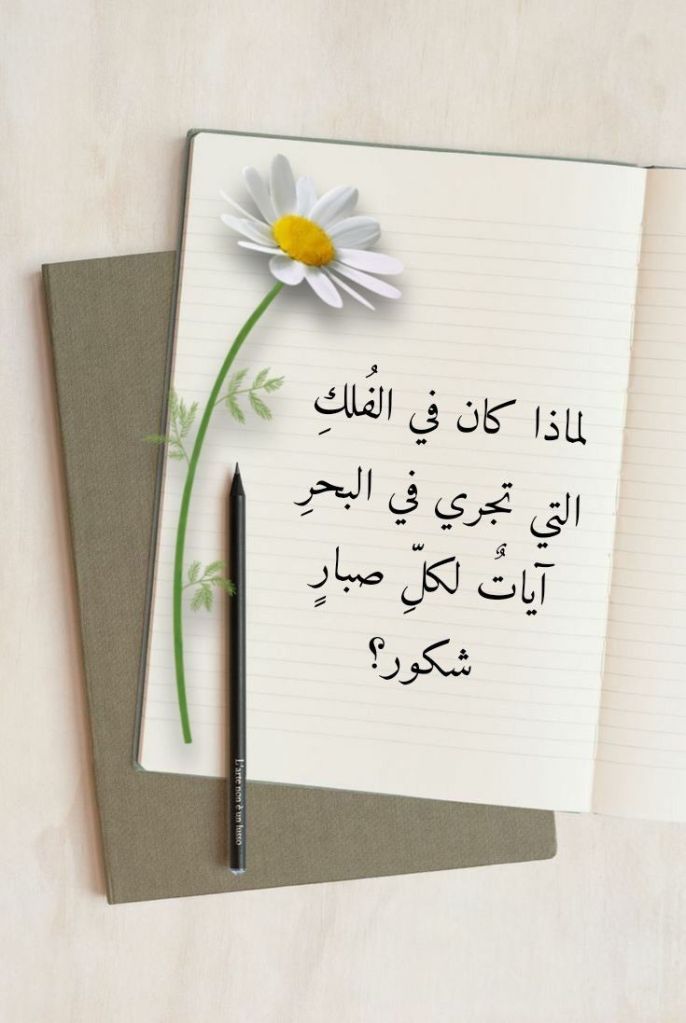 لماذا كان في الفُلكِ
التي تجري في البحرِ
آياتٌ لكلّ صبارٍ
شكور؟
L'arte non è un lusso